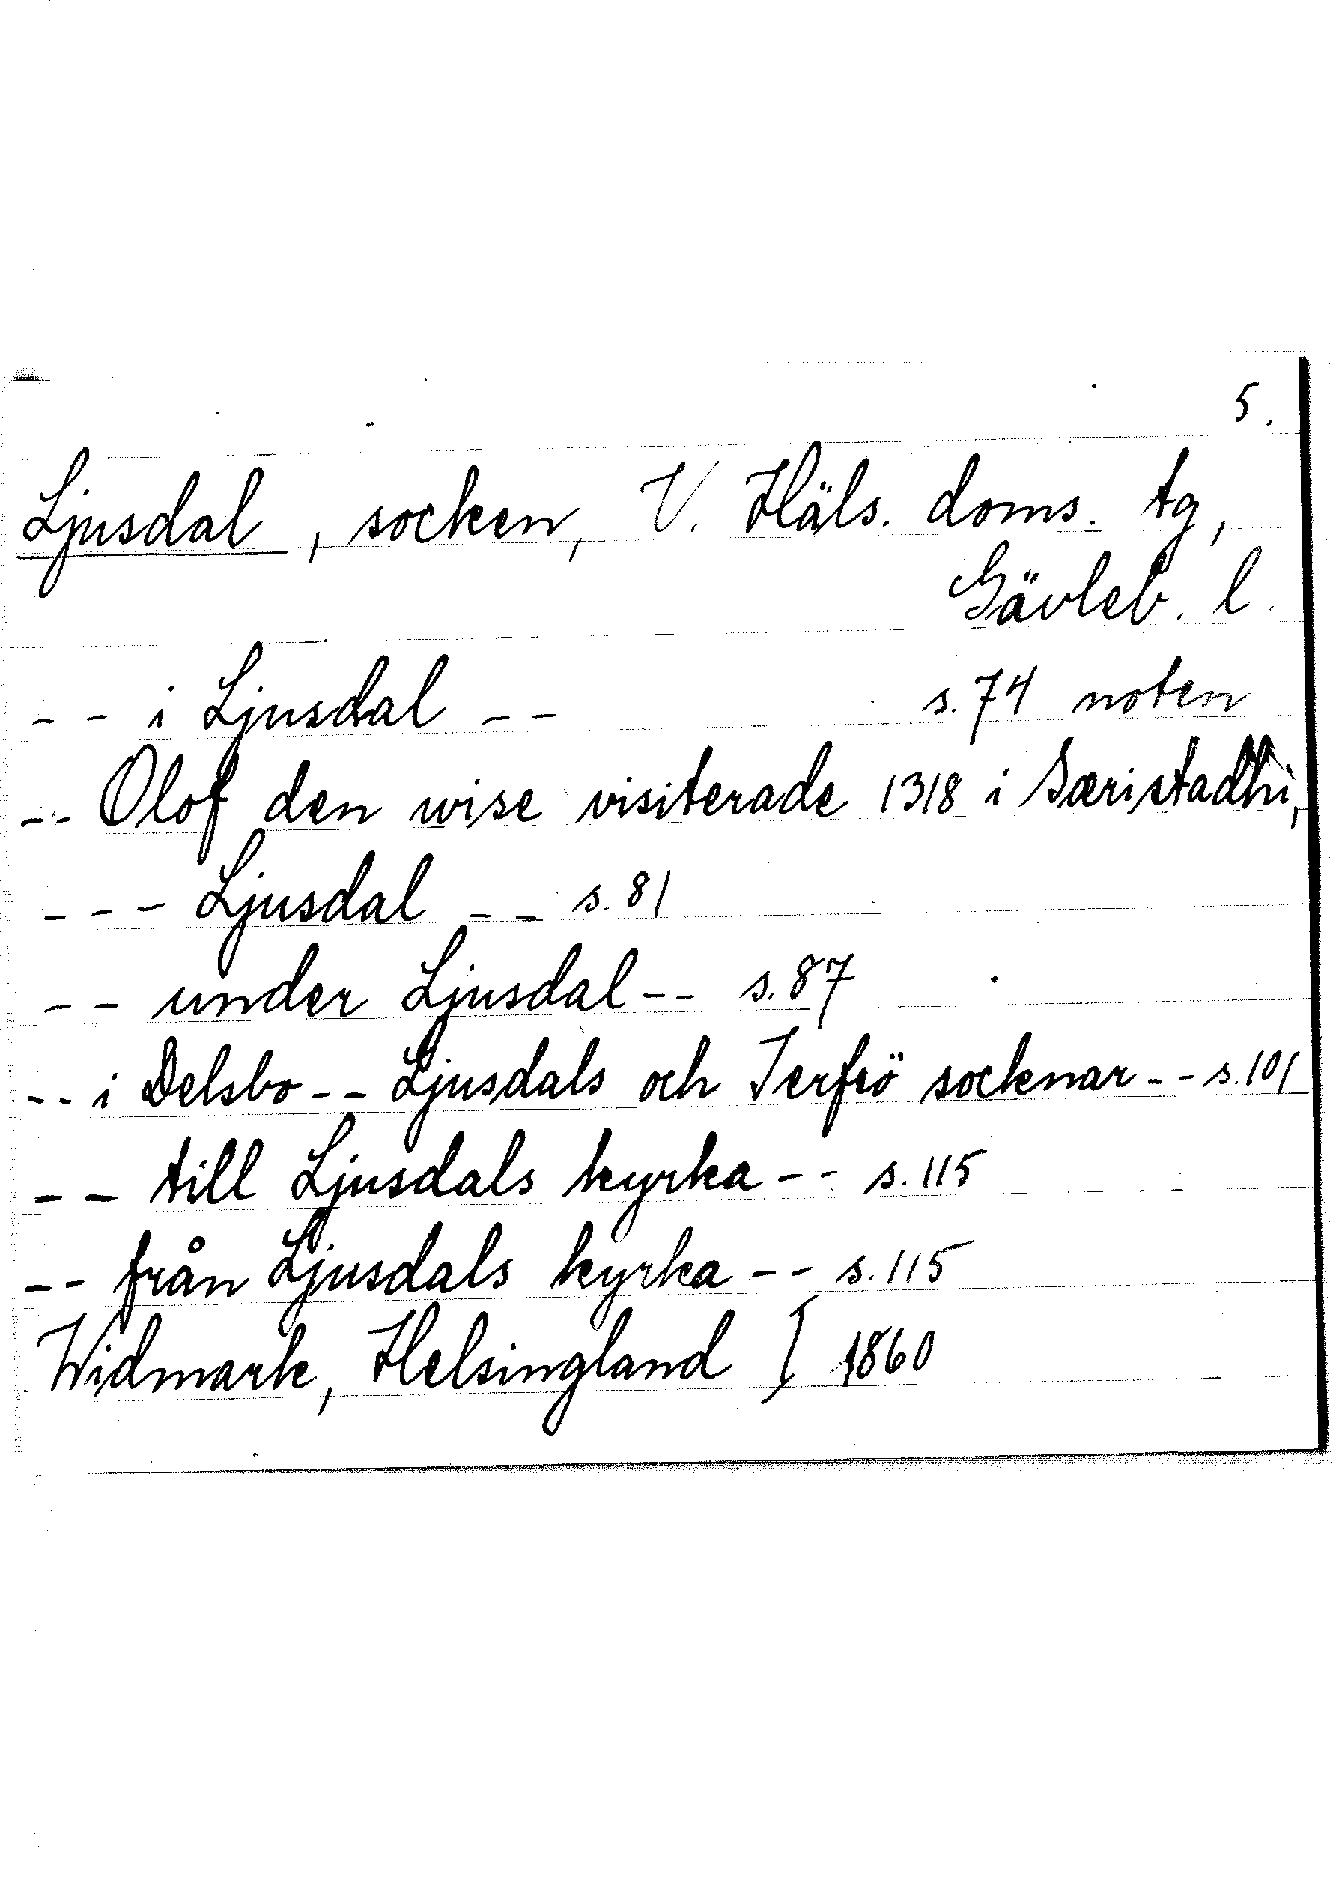 5.
Ljusdal, socken, V. Häls. doms. tg,
Gävleb. l.
-- i Ljusdal -- s. 74 noten
-- Olof den wise visiterade 1318 i Særistadhi,
--- Ljusdal -- s. 81
-- under Ljusdal -- s. 87
-- i Delsbo -- Ljusdals och Jerfsö socknar -- s. 101
-- till Ljusdals kyrka -- s. 115
-- från Ljusdals kyrka -- s. 115
Widmark, Helsingland I 1860